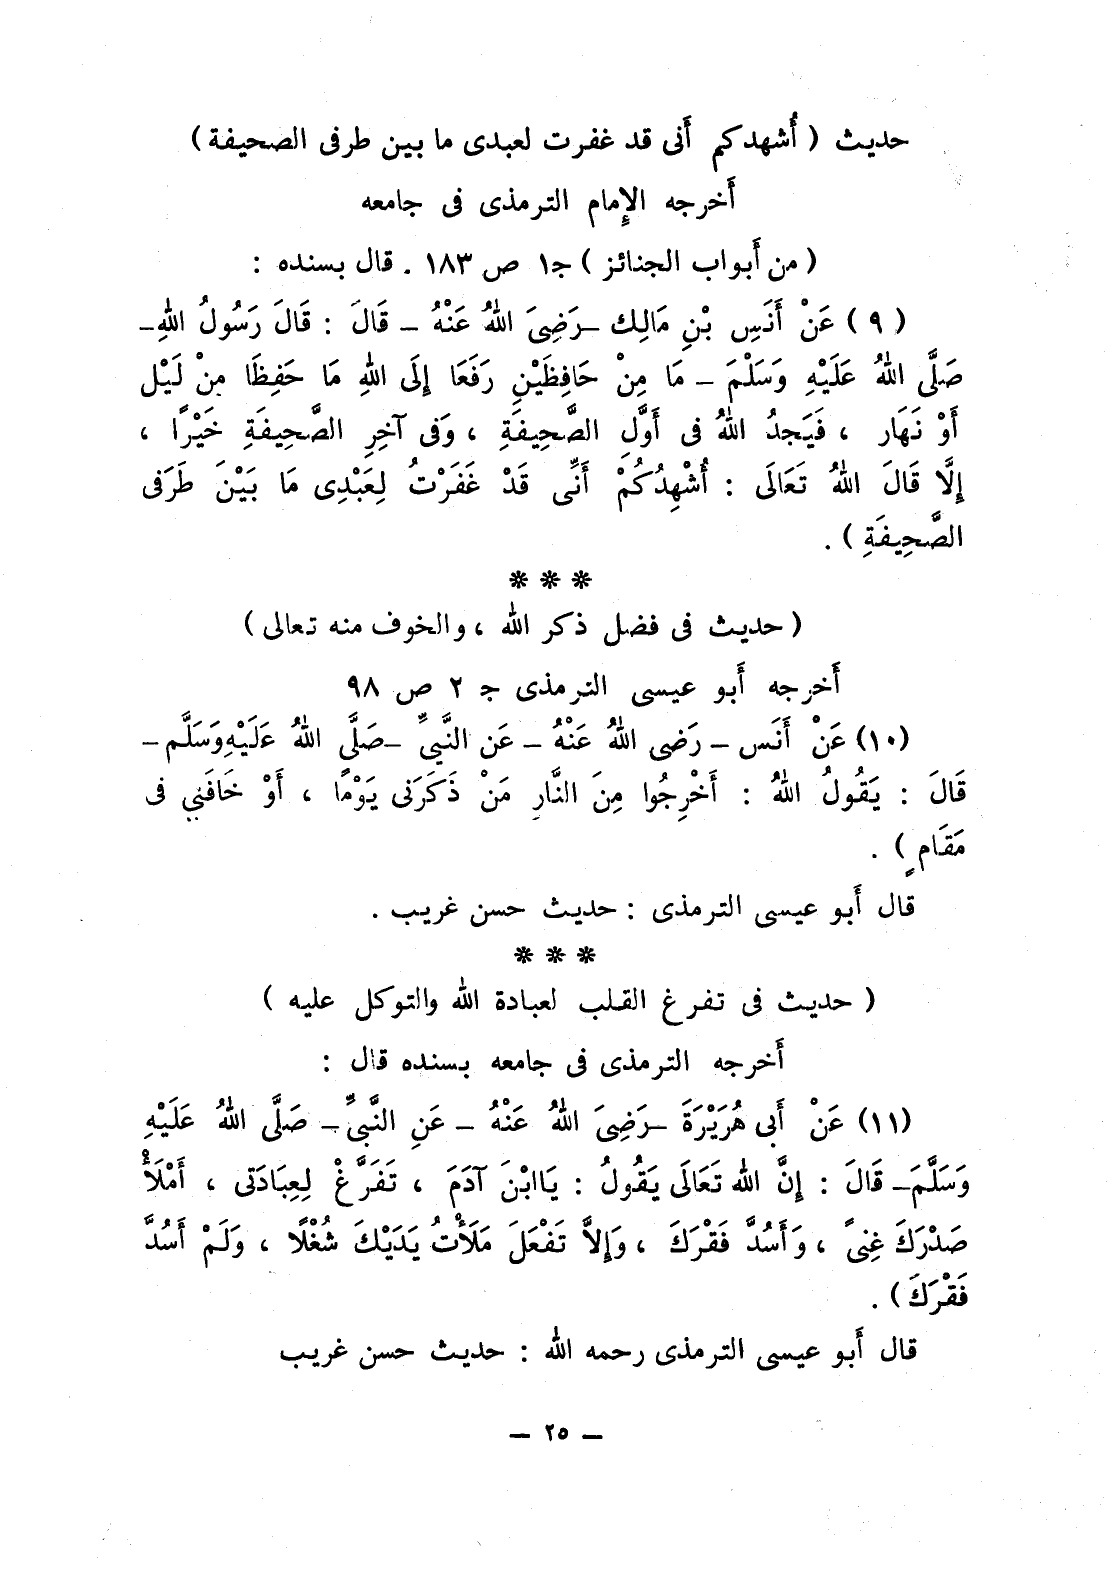 حديث ( أُشهدكم أَنى قد غفرت لعبدى ما بين طرفى الصحيفة )
أَخرجه الإِمام الترمذى فى جامعه
( من أَبواب الجنائز ) جـ١ ص ١٨٣ . قال بسنده :
( ٩ ) عَنْ أَنَسِ بْنِ مَالِك – رَضِىَ اللهُ عَنْهُ – قَالَ : قَالَ رَسُولُ اللهِ –
صَلَّى اللهُ عَلَيْهِ وَسَلَّمَ – مَا مِنْ حَافِظَيْنِ رَفَعَا إِلَى اللهِ مَا حَفِظَا مِنْ لَيْل
أَوْ نَهَار ، فَيَجدُ اللهُ فى أَوَّلِ الصَّحِيفَةِ ، وَفى آخِرِ الصَّحِيفَةِ خَيْرًا ،
إِلَّا قَالَ اللهُ تَعَالَى : أُشْهِدُكُمْ أَنِّى قَدْ غَفَرْتُ لِعَبْدِى مَا بَيْنَ طَرَفى
الصَّحِيفَةِ ) .
❋ ❋ ❋
( حديث فى فضل ذكر الله ، والخوف منه تعالى )
أَخرجه أَبو عيسى الترمذى جـ ٢ ص ٩٨
(١٠) عَنْ أَنَس – رَضى اللهُ عَنْهُ – عَن النَّبىِّ – صَلَّى اللهُ عَلَيْهِ وَسَلَّم –
قَالَ : يَقُولُ اللهُ : أَخْرِجُوا مِنَ النَّارِ مَنْ ذَكَرَنى يَوْمًا ، أَوْ خَافَنِي فى
مَقَامٍ ) .
قال أَبو عيسى الترمذى : حديث حسن غريب .
❋ ❋ ❋
( حديث فى تفرغ القلب لعبادة الله والتوكل عليه )
أَخرجه الترمذى فى جامعه بسنده قال :
(١١) عَنْ أَبى هُرَيْرَةَ – رَضِىَ اللهُ عَنْهُ – عَنِ النَّبىِّ – صَلَّى اللهُ عَلَيْهِ
وَسَلَّمَ – قَالَ : إِنَّ الله تَعَالَى يَقُولُ : يَاابْنَ آدَمَ ، تَفَرَّغْ لِعِبَادَتى ، أَمْلَأْ
صَدْرَكَ غِنىً ، وَأَسُدَّ فَقْرَكَ ، وَإِلاَّ تَفْعَلَ مَلَأْتُ يَدَيْكَ شُغْلًا ، وَلَمْ أَسُدَّ
فَقْرَكَ ) .
قال أَبو عيسى الترمذى رحمه الله : حديث حسن غريب
– ٢٥ –